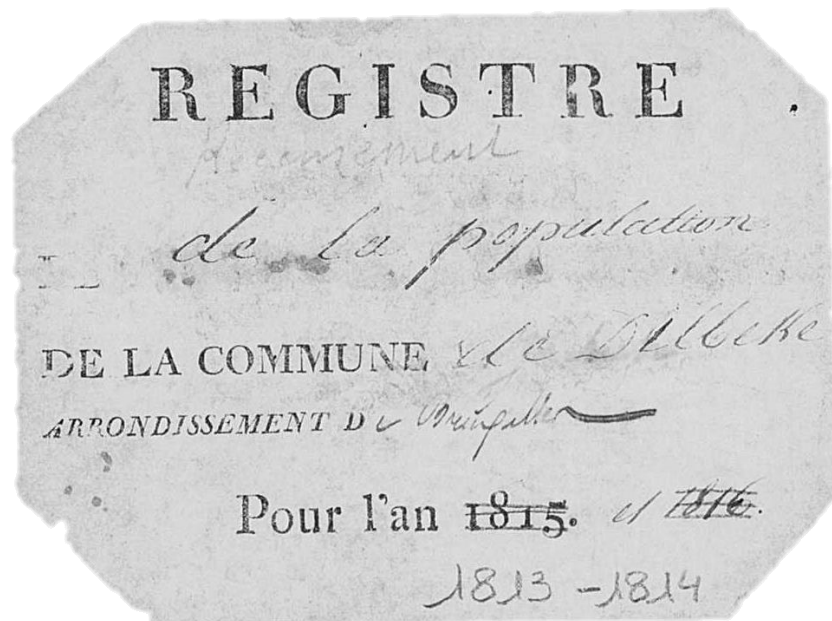 REGISTRE
Recensement
de la population
DE LA COMMUNE de Dilbeke
ARRONDISSEMENT De Bruxelles
Pour l'an 1815. et 1816.
1813 - 1814